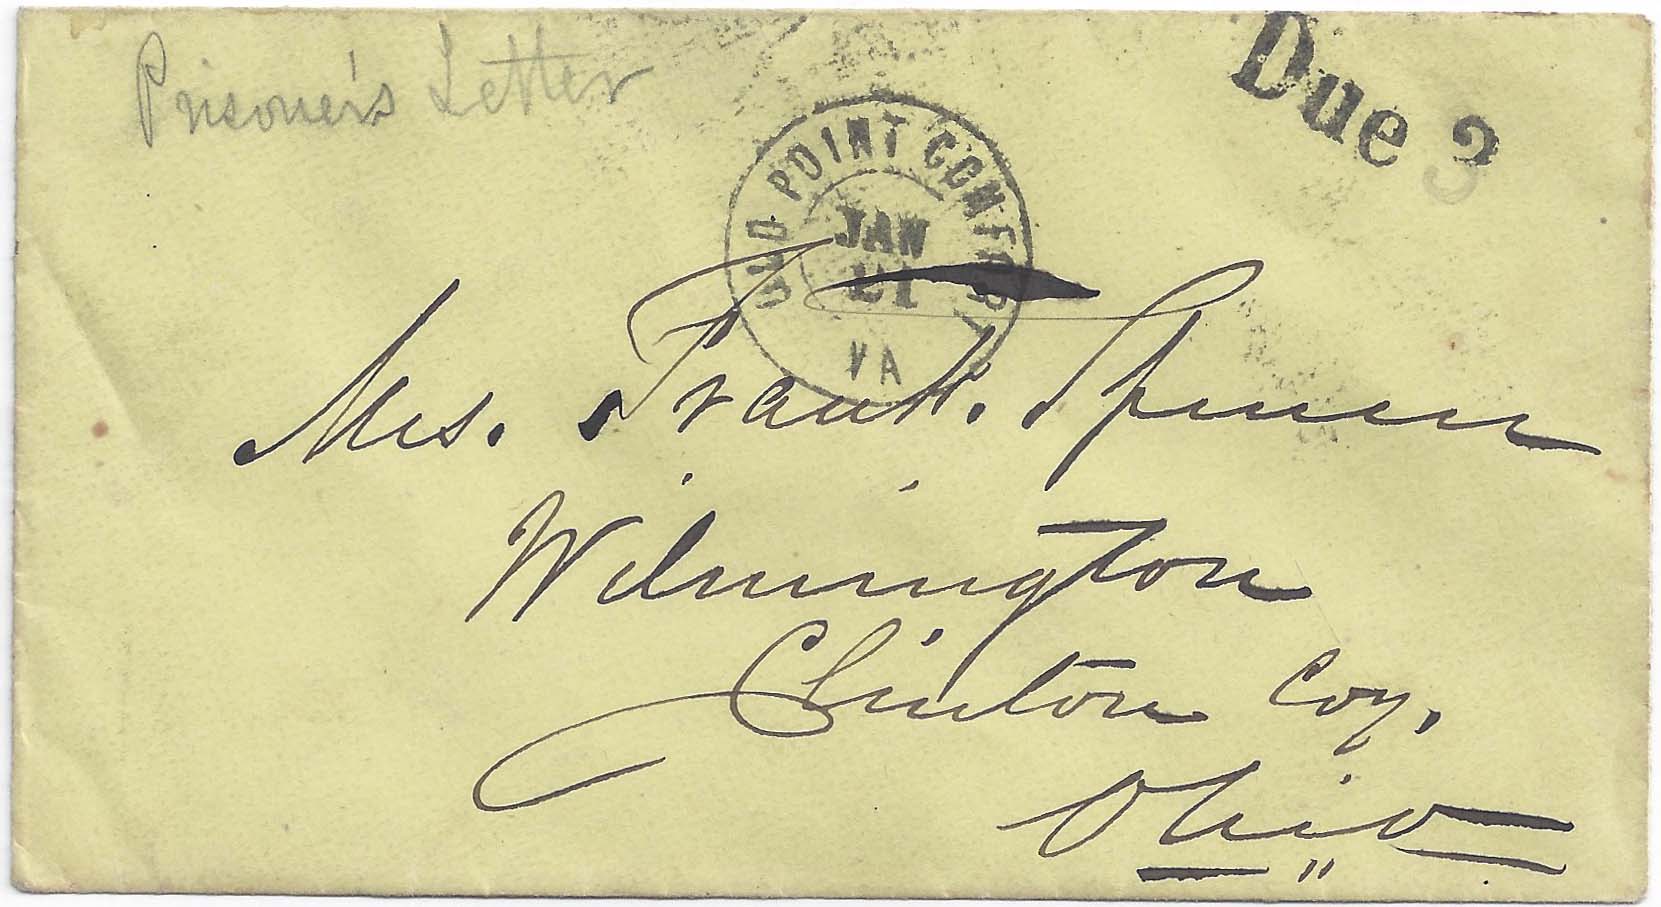 Prisoner's Letter
Due 3
OLD POINT COMFORT
JAN
VA
Mrs. Frank.
Wilmington
Clinton Coy.
Ohio